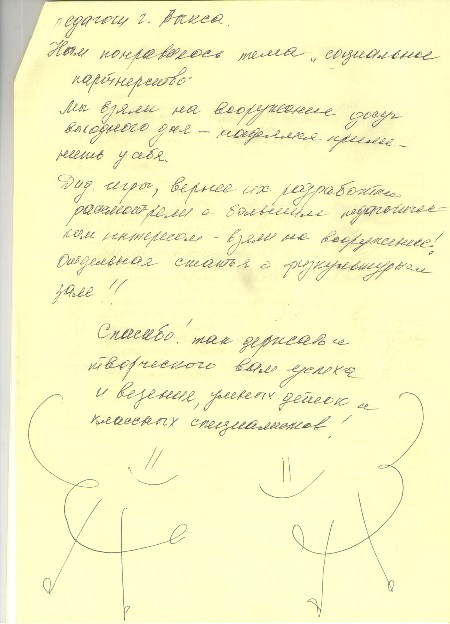 педагоги г. Выкса.
Нам понравилось тема „социальное
партнерство"
Мы взяли на вооружение досуг
выходного дня – попытка приме-
нить у себя.
Дид. игры, вернее их разработки
рассмотрели с большим педагогичес-
ким интересом – взяли на вооружение!
Отдельная статья о физкультурном
зале!!
Спасибо! так держать и
творческого вам успеха
и везения, умных деток и
классных специалистов!